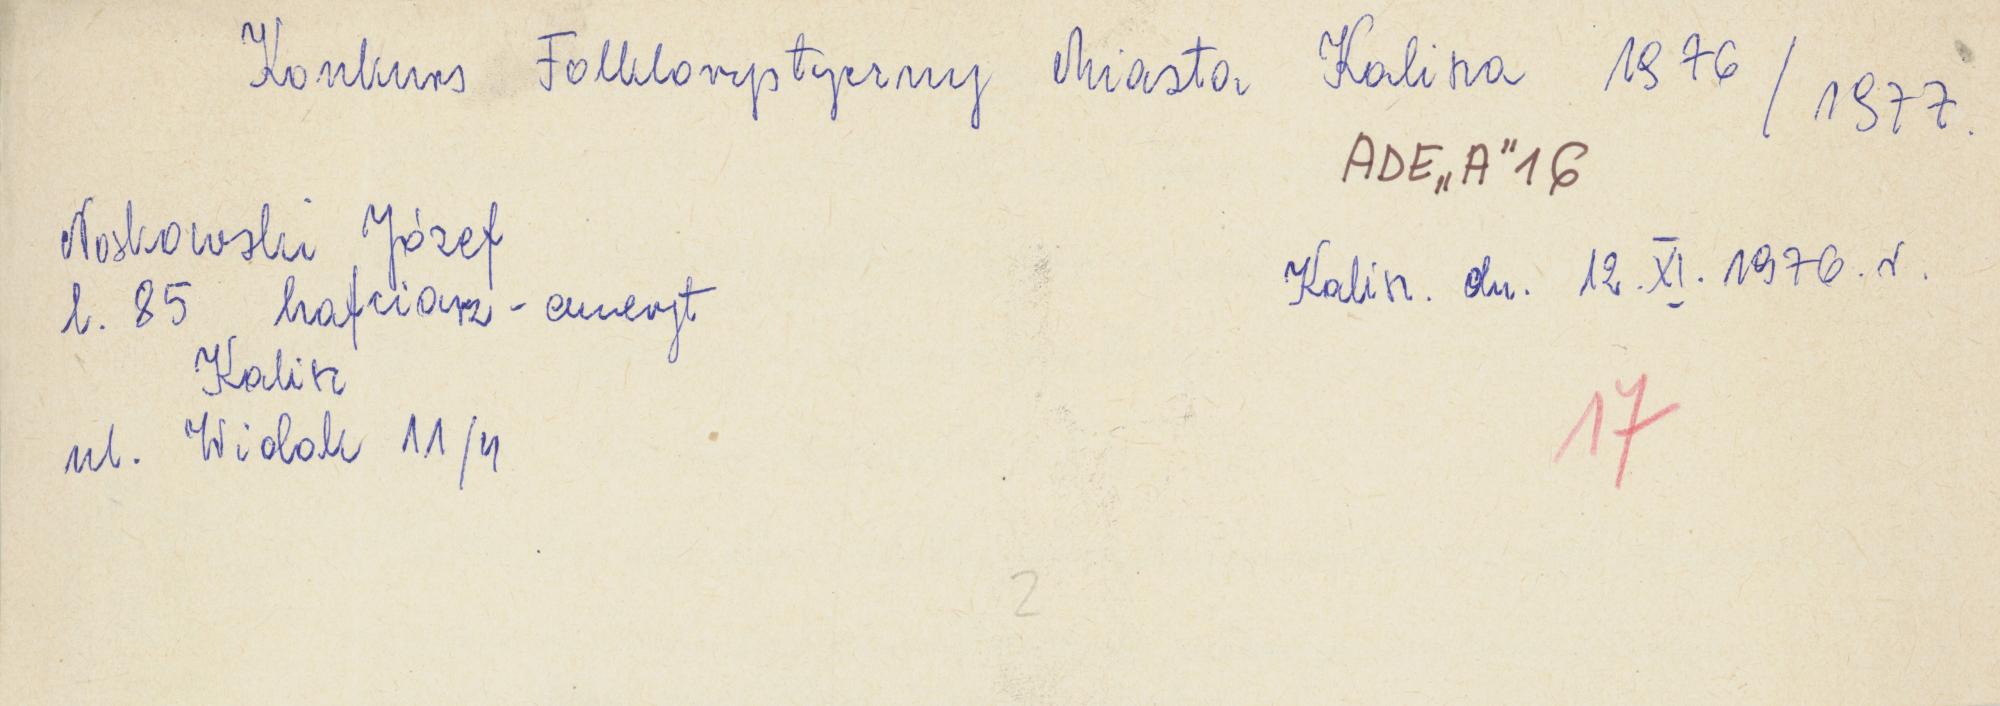 Konkurs Folklorystyczny Miasta Kalisza 1976 / 1977.
ADE „A" 16
Noskowski Józef
l. 85 hafciarz - emeryt
Kalisz. dn. 12.XI.1976.r.
Kalisz
ul. Widok 11/4
17
2